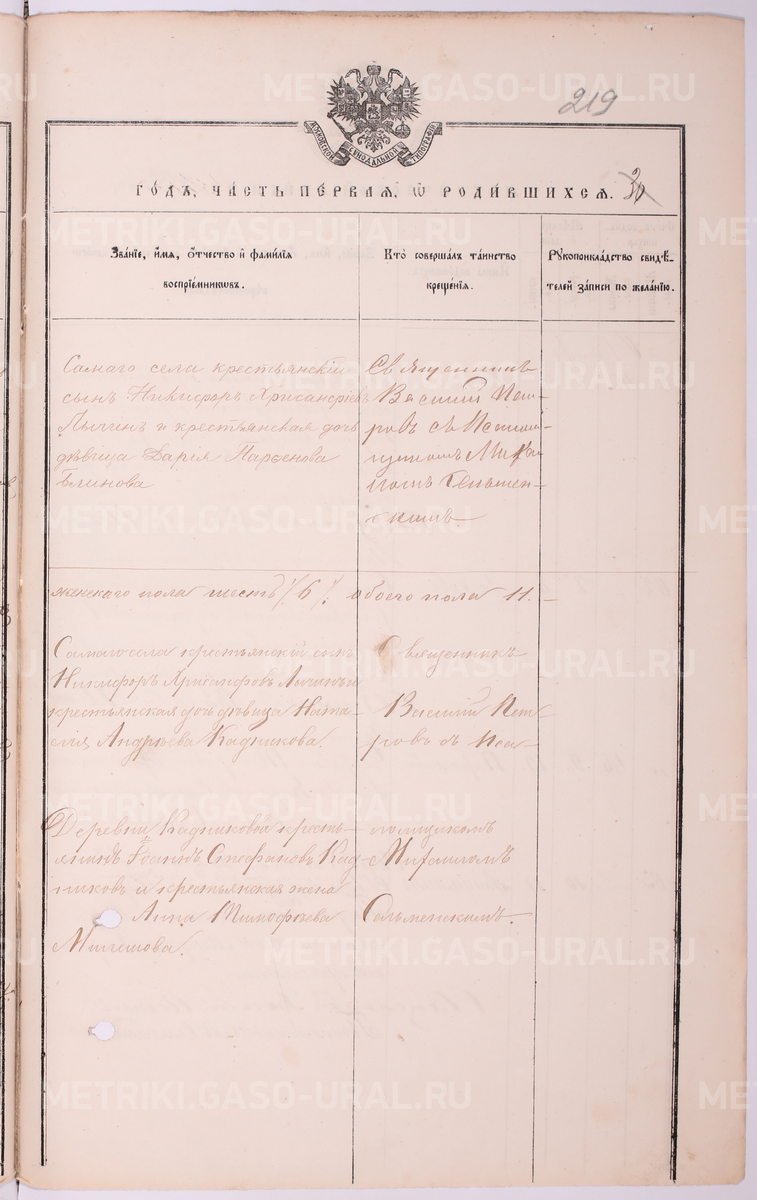 219
МОСКОВСКОЙ СѴНОДАЛЬНОЙ ТИПОГРАФІИ
го́дꙋ, ча́сть пе́рваѧ, ѡ҆ роди́вшихсѧ. 30
Зва́нїе, и҆́мѧ, ѻ҆́тчество и҆ фами́лїѧ
воспрїе́мникѡвъ.
Кто̀ соверша́лъ та́инство
креще́нїѧ.
Рꙋкоприкла́дство свидѣ́-
телей за́писи по жела́нїю.
Самаго села крестьянскій
сынъ Никифоръ Хрисанфовъ
Лычинъ и крестьянская дочь
дѣвица Дарія Парѳенова
Блинова
Священникъ
Василій Пет-
ровъ съ Псаломщикомъ
женскаго пола шесть /6/. обоего пола 11.
Самаго села крестьянскій сынъ
Никифоръ Хрисанфовъ Лычинъ и
крестьянская дочь дѣвица Ната-
лія Андреева Кадникова.
Священникъ
Василій Пет-
ровъ съ Пса-
Деревни Кадниковой кресть-
янинъ Іосифъ Стефановъ Кад-
никовъ и крестьянская жена
Анна Тимофеева
ломщикомъ
Михаиломъ
METRIKI.GASO-URAL.RU